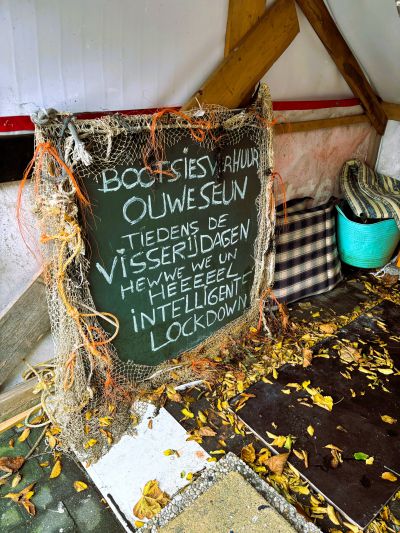 BOOTSIESVRHUUR
OUWESEUN
TIEDENS DE
VISSERIJDAGEN
HEWWE WE UN
HEEEEEL
INTELLIGENTE
LOCKDOWN